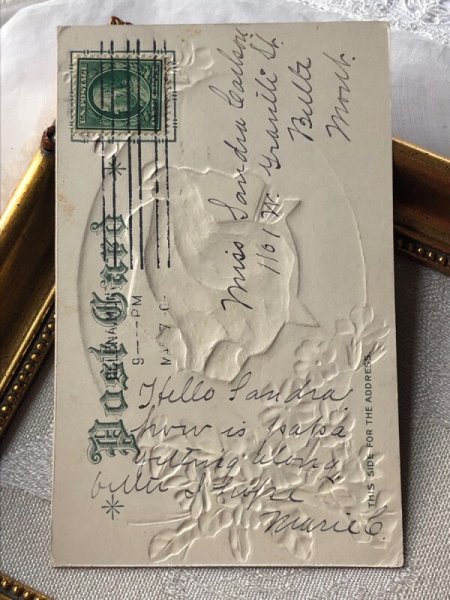 U.S. POSTAGE
Post Card
THIS SIDE FOR THE ADDRESS
9---PM
Miss Sandra Carlson
1161 W. Granite St.
Butte
Mont.
Hello Sandra
how is papa
getting along
better I hope
Marie C.